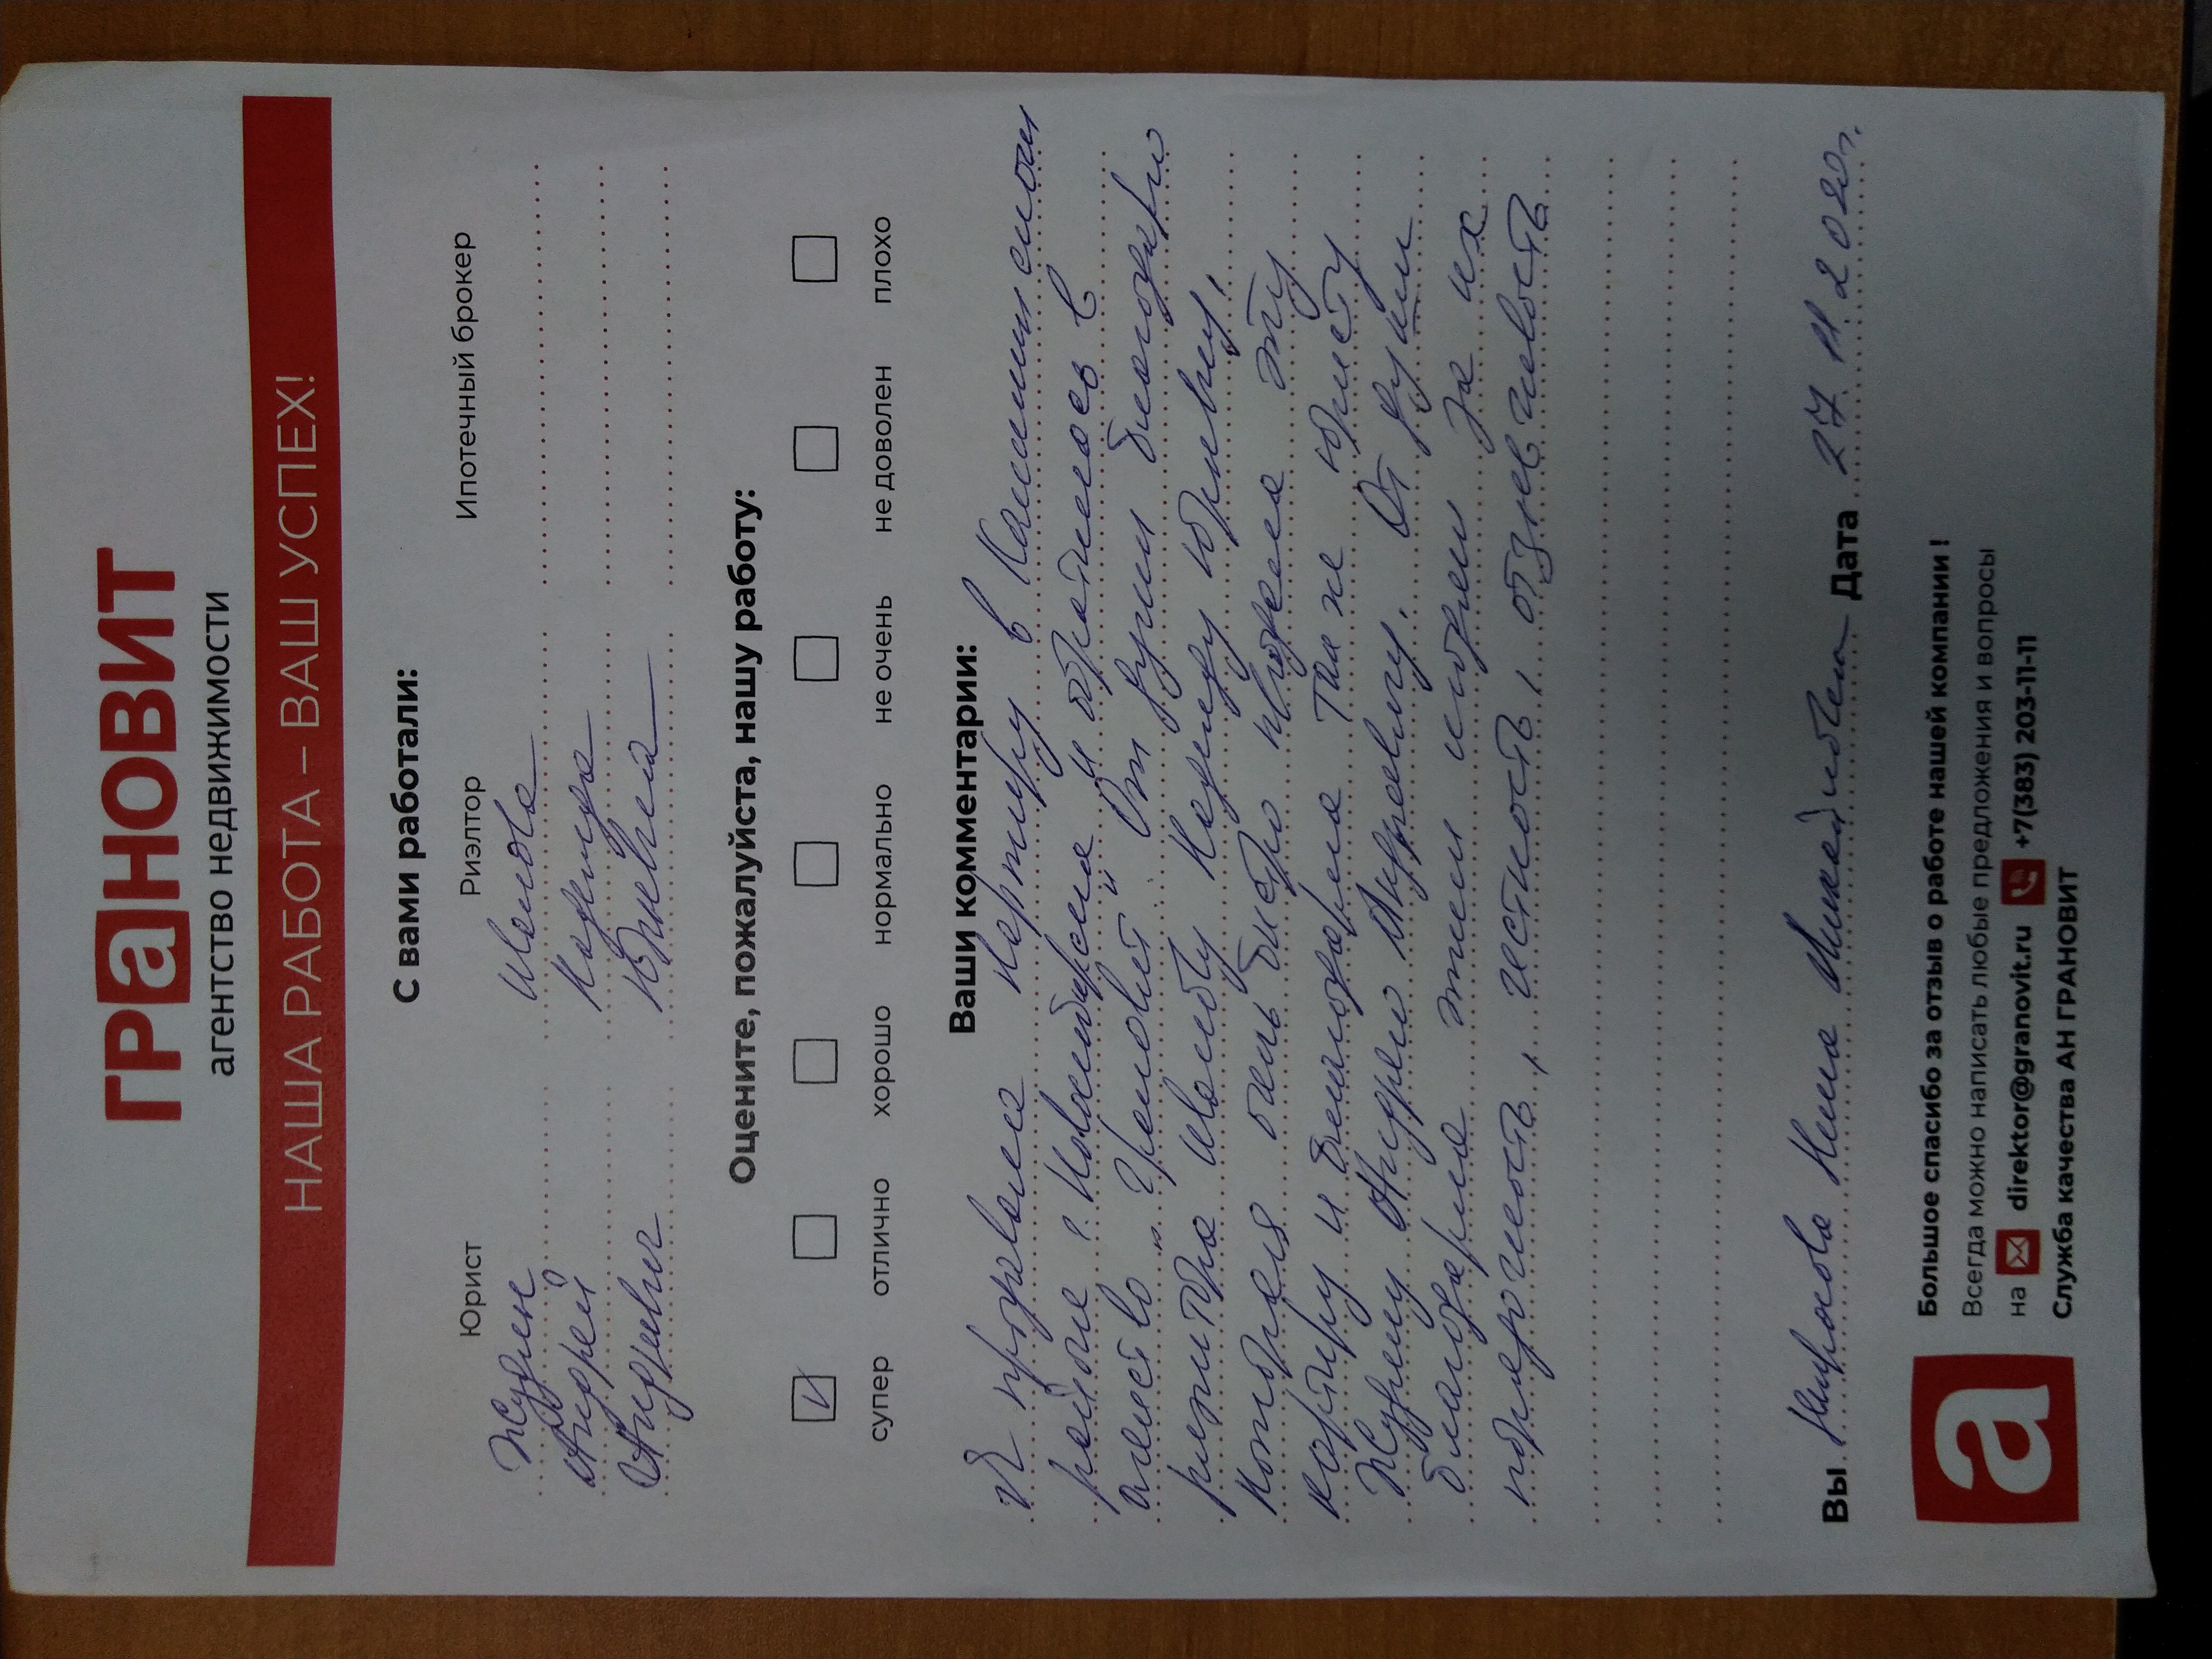 ГРаНОВИТ
агентство недвижимости
НАША РАБОТА – ВАШ УСПЕХ!
С вами работали:
Юрист Риэлтор Ипотечный брокер
Жудин Швалова
Андрей Надежда
Андреевич Юрьевна
Оцените, пожалуйста, нашу работу:
супер отлично хорошо нормально не очень не доволен плохо
Ваши комментарии:
Я продавала квартиру в Калининском
районе г. Новосибирска и обратилась в
агенство "Грановит". От души благодарю
риэлтора Швалову Надежду Юрьевну,
которая очень быстро продала эту
квартиру и благодарна так же юристу
Жудину Андрею Андреевичу. От души
благодарна этим людям за их
порядочность, честность, отзывчивость
Вы Никрасова Нина Дата 27 11 2020г.
Большое спасибо за отзыв о работе нашей компании !
Всегда можно написать любые предложения и вопросы
на direktor@granovit.ru +7(383) 203-11-11
Служба качества АН ГРАНОВИТ
а